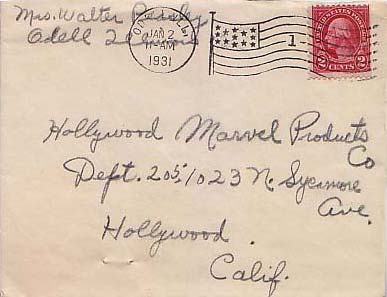 Mrs. Walter
Odell Illinois
JAN 2
11-AM
1931
1
UNITED STATES POSTAGE
2 CENTS 2
Hollywood Marvel Products
Co
Dept. 205, 1023 N. Sycamore
Ave.
Hollywood.
Calif.